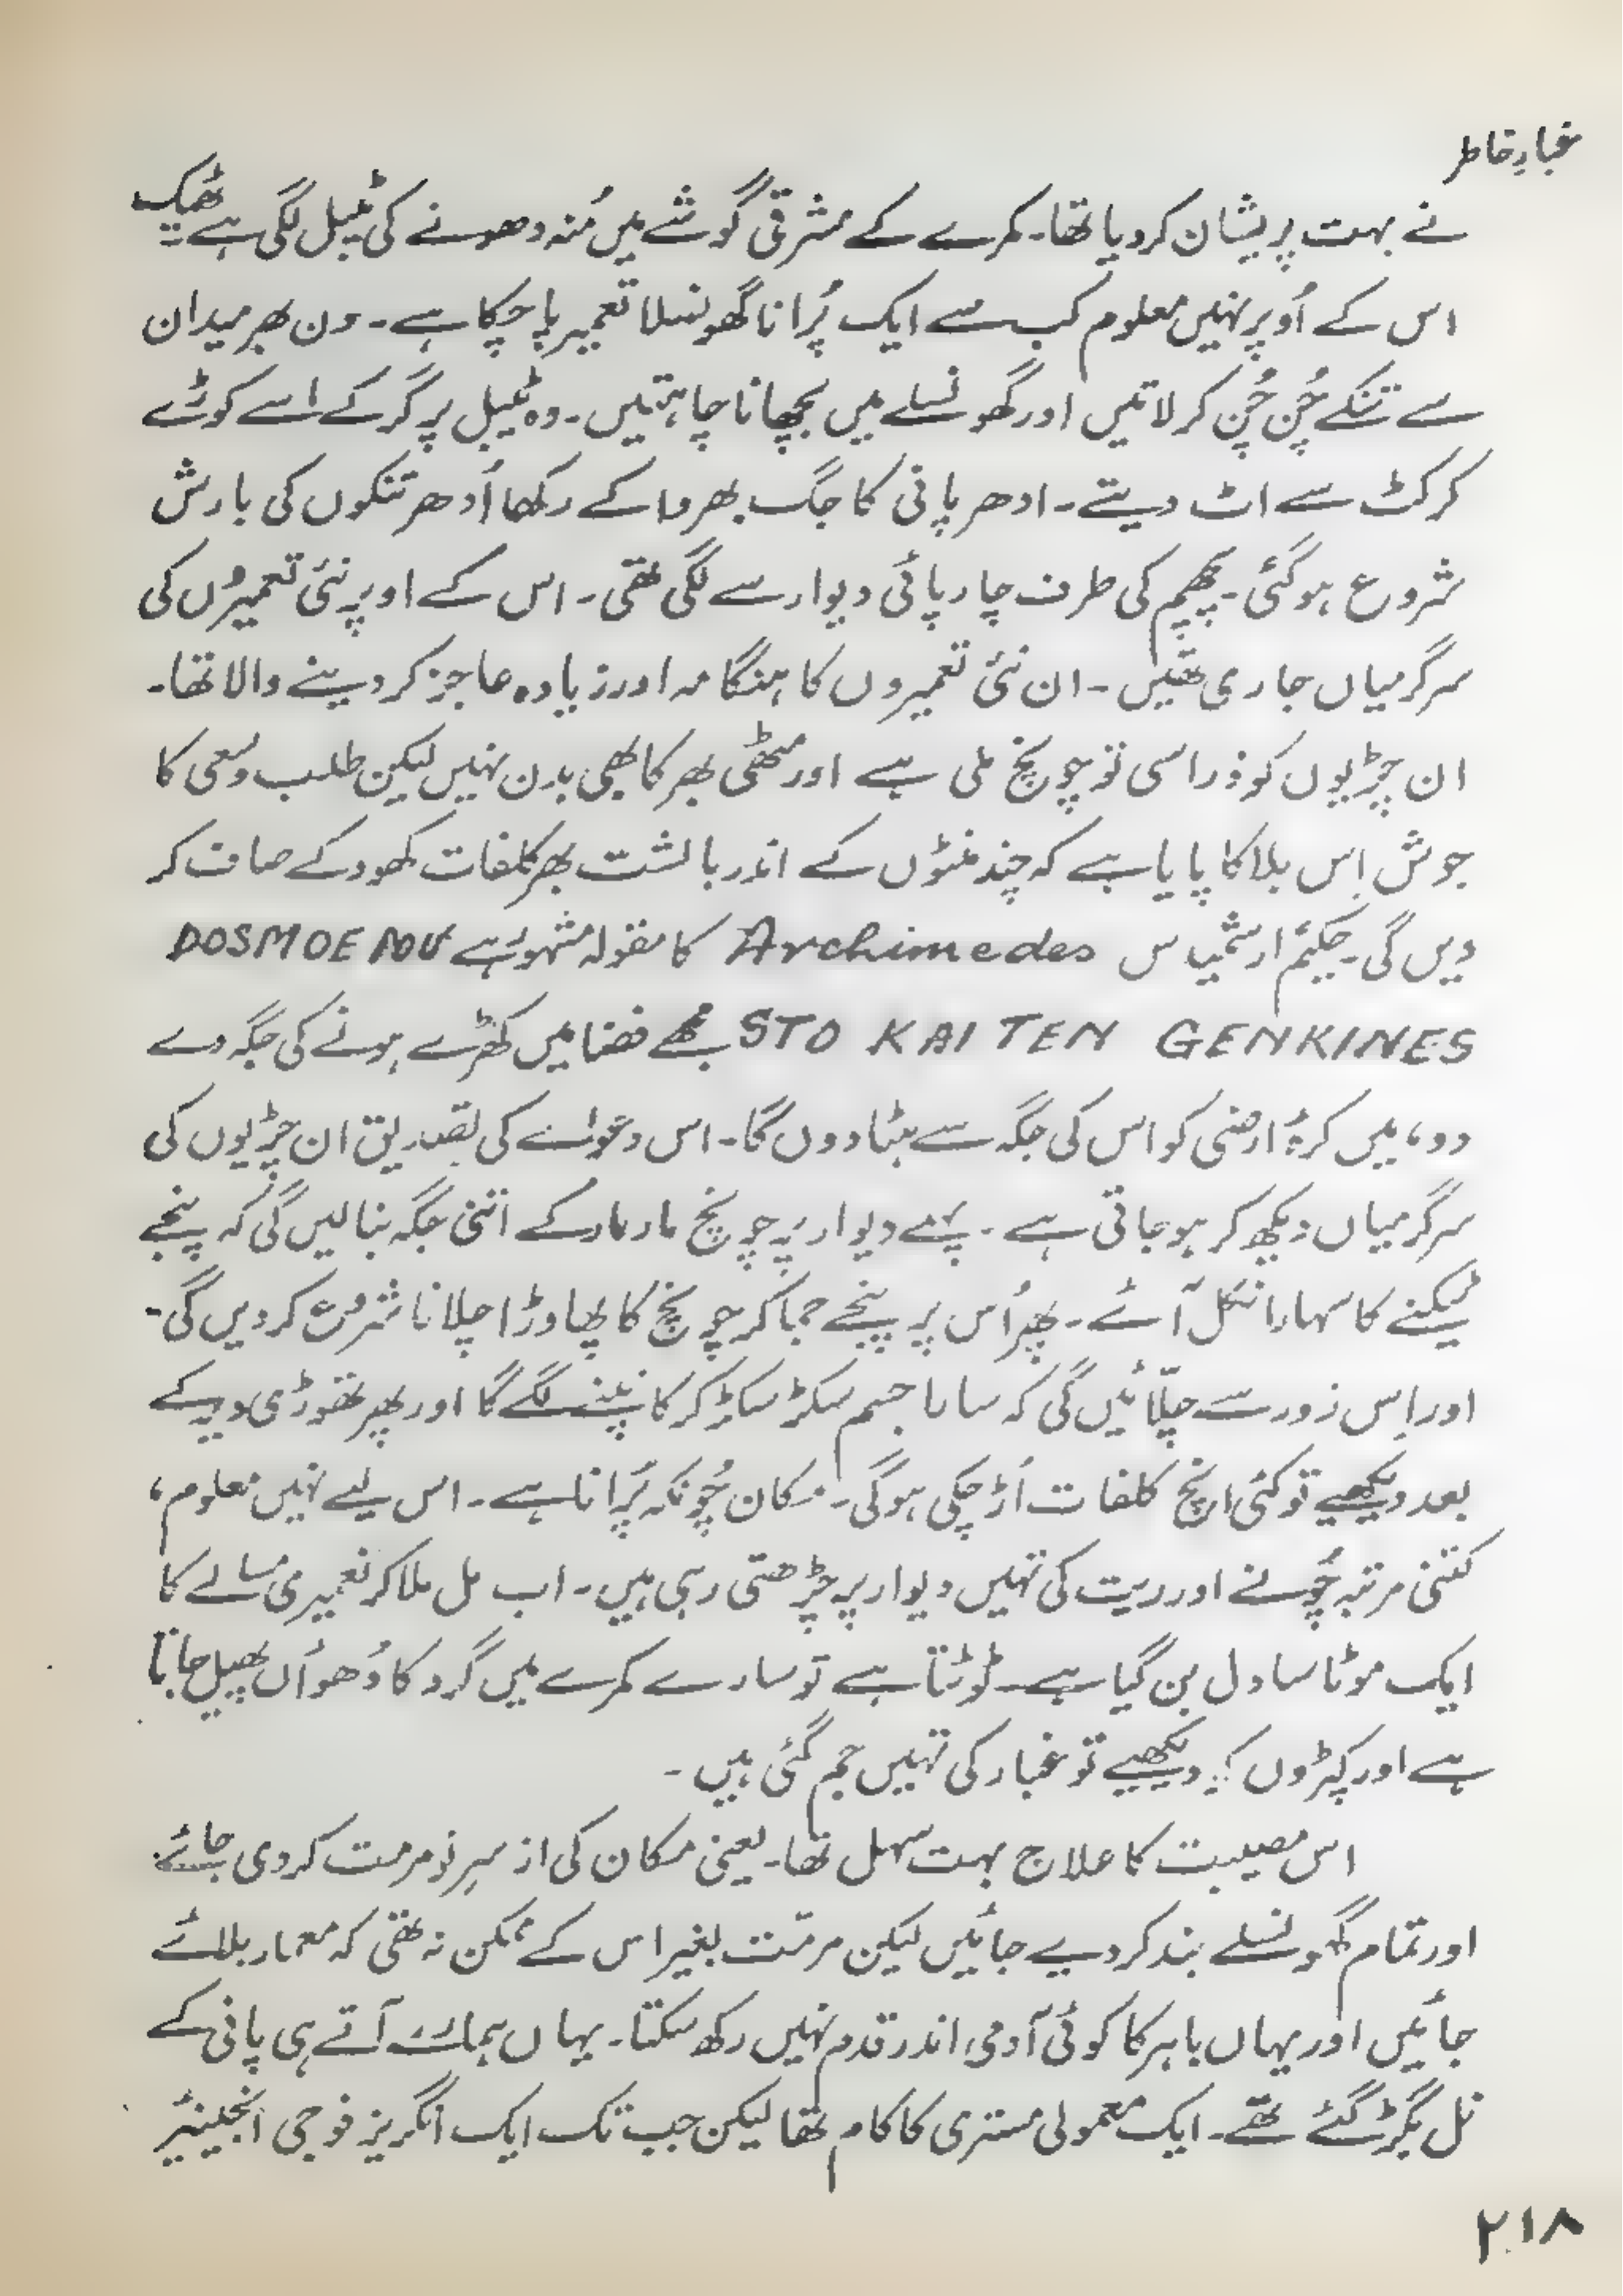 غبارِ خاطر
نے بہت پریشان کر دیا تھا۔ کمرے کے مشرقی گوشے میں مُنہ دھونے کی ٹیبل لگی ہے ٹھیک
اس کے اُوپر نہیں معلوم کب سے ایک پُرانا گھونسلا تعمیر پا چکا ہے۔ دن بھر میدان
سے تنکے چُن چُن کر لاتیں اور گھونسلے میں بچھانا چاہتیں۔ وہ ٹیبل پر گر کے اسے کوڑے
کرکٹ سے اٹ دیتے۔ ادھر پانی کا جگ بھروا کے رکھا اُدھر تنکوں کی بارش
شروع ہو گئی۔ پچھّم کی طرف چارپائی دیوار سے لگی تھی۔ اس کے اوپر نئی تعمیروں کی
سرگرمیاں جاری تھیں۔ ان نئی تعمیروں کا ہنگامہ اور زیادہ عاجز کر دینے والا تھا۔
ان چڑیوں کو ذرا سی تو چونچ ملی ہے اور مٹھّی بھر کا بھی بدن نہیں لیکن طلب و سعی کا
جوش اِس بلا کا پایا ہے کہ چند منٹوں کے اندر بالشت بھر کلفات کھود کے صاف کر
دیں گی۔ حکیم ارشمیدس Archimedes کا مقولہ مشہور ہے DOSMOE POU
STO KAI TEN GENKINES مجھے فضا میں کھڑے ہونے کی جگہ دے
دو، میں کرۂ ارضی کو اس کی جگہ سے ہٹا دوں گا۔ اس دعوٰے کی تصدیق ان چڑیوں کی
سرگرمیاں دیکھ کر ہو جاتی ہے۔ پہلے دیوار پر چونچ مار مار کے اتنی جگہ بنا لیں گی کہ پنجے
ٹیکنے کا سہارا نکل آئے۔ پھر اُس پر پنجے جما کر چونچ کا پھاوڑا چلانا شروع کر دیں گی۔
اور اِس زور سے چلّائیں گی کہ سارا جسم سکڑ سکڑ کر کانپنے لگے گا اور پھر تھوڑی دیر کے
بعد دیکھیے تو کئی انچ کلفات اُڑ چکی ہوگی۔ مکان چُونکہ پُرانا ہے۔ اس لیے نہیں معلوم،
کتنی مرتبہ چُونے اور ریت کی تہیں دیوار پر چڑھتی رہی ہیں۔ اب مل ملا کر تعمیری مسالے کا
ایک موٹا سا دل بن گیا ہے۔ ٹوٹتا ہے تو سارے کمرے میں گرد کا دُھواُں پھیل جاتا
ہے اور کپڑوں کو دیکھیے تو غبار کی تہیں جم گئی ہیں۔
اس مصیبت کا علاج بہت سہل تھا۔ یعنی مکان کی از سرِ نو مرمت کر دی جائے۔
اور تمام گھونسلے بند کر دیے جائیں لیکن مرمّت بغیر اس کے ممکن نہ تھی کہ معمار بلائے
جائیں اور یہاں باہر کا کوئی آدمی اندر قدم نہیں رکھ سکتا۔ یہاں ہمارے آتے ہی پانی کے
نل بگڑ گئے تھے۔ ایک معمولی مستری کا کام تھا لیکن جب تک ایک انگریز فوجی انجینیئر
۲۱۸